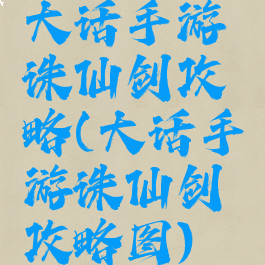 大话手游
诛仙剑攻
略(大话手
游诛仙剑
攻略图)